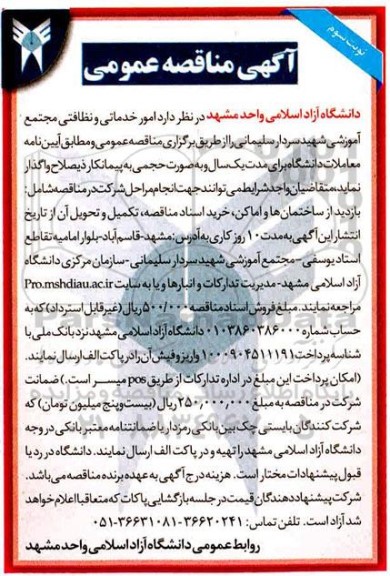 نوبت سوم
آگهی مناقصه عمومی
دانشگاه آزاد اسلامی واحد مشهد در نظر دارد امور خدماتی و نظافتی مجتمع
آموزشی شهید سردار سلیمانی را از طریق برگزاری مناقصه عمومی و مطابق آیین نامه
معاملات دانشگاه برای مدت یک سال و به صورت حجمی به پیمانکار ذیصلاح واگذار
نماید، متقاضیان واجد شرایط می توانند جهت انجام مراحل شرکت در مناقصه شامل:
بازدید از ساختمان ها و اماکن، خرید اسناد مناقصه، تکمیل و تحویل آن از تاریخ
انتشار این آگهی به مدت ۱۰ روز کاری به آدرس: مشهد-قاسم آباد-بلوار امامیه تقاطع
استاد یوسفی - مجتمع آموزشی شهید سردار سلیمانی-سازمان مرکزی دانشگاه
آزاد اسلامی مشهد- مدیریت تدارکات و انبارها و یا به سایت Pro.mshdiau.ac.ir
مراجعه نمایند. مبلغ فروش اسناد مناقصه ۵۰۰/۰۰۰ ریال (غیر قابل استرداد) که به
حساب شماره ۰۱۰۳۸۶۰۳۸۶۰۰۰ دانشگاه آزاد اسلامی مشهد نزد بانک ملی با
شناسه پرداخت ۱۰۰۰۹۰۴۵۱۱۱۹۱ واریز و فیش آن را در پاکت الف ارسال نمایند.
(امکان پرداخت این مبلغ در اداره تدارکات از طریق pos میسر است.) ضمانت
شرکت در مناقصه به مبلغ ۲۵۰,۰۰۰,۰۰۰ ریال (بیست و پنج میلیون تومان) که
شرکت کنندگان بایستی چک بین بانکی رمزدار یا ضمانتنامه معتبر بانکی در وجه
دانشگاه آزاد اسلامی مشهد را تهیه و در پاکت الف ارسال نمایند. دانشگاه در رد یا
قبول پیشنهادات مختار است. هزینه درج آگهی به عهده برنده مناقصه می باشد.
شرکت پیشنهاد دهندگان قیمت در جلسه بازگشایی پاکات که متعاقبا اعلام خواهد
شد آزاد است. تلفن تماس: ۳۶۶۲۰۲۴۱-۳۶۶۳۱۰۸۱-۰۵۱
روابط عمومی دانشگاه آزاد اسلامی واحد مشهد